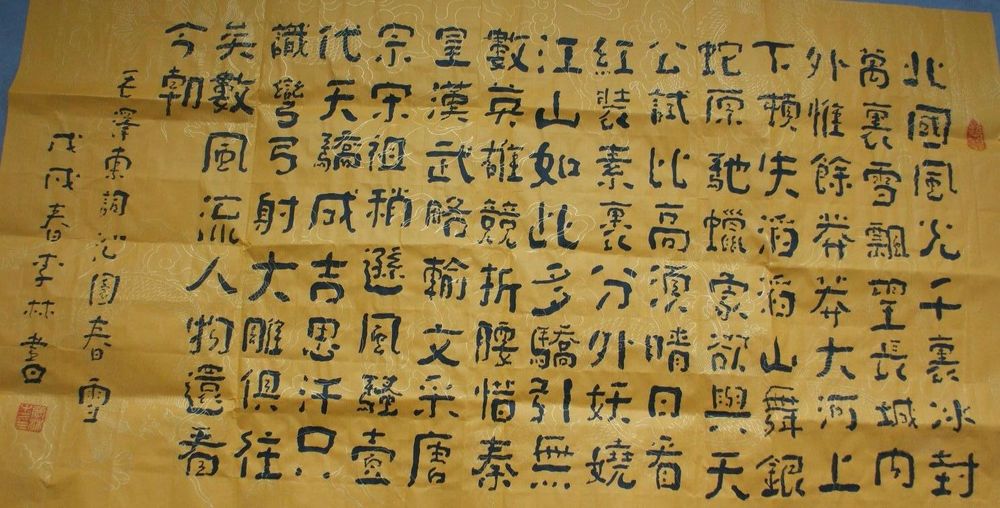 北國風光千裏冰封
萬裏雪飄望長城内
外惟餘莽莽大河上
下頓失滔滔山舞銀
蛇原馳蠟象欲與天
公試比高須晴日看
紅裝素裹分外妖嬈
江山如此多驕引無
數英雄競折腰惜秦
皇漢武略輸文采唐
宗宋祖稍遜風騷壹
代天驕成吉思汗只
識彎弓射大雕俱往
矣數風流人物還看
今朝
毛澤東詞沁園春雪
戊戌春李林書